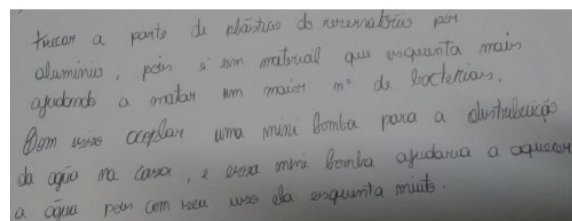 trocar a parte de plástico do reservatório por
alumínio, pois é um material que esquenta mais
ajudando a matar um maior nº de bactérias.
Bem isso acoplar uma mini bomba para a distribuição
da água na casa, e essa mini bomba ajudaria a aquecer
a água pois com seu uso ela esquenta muito.